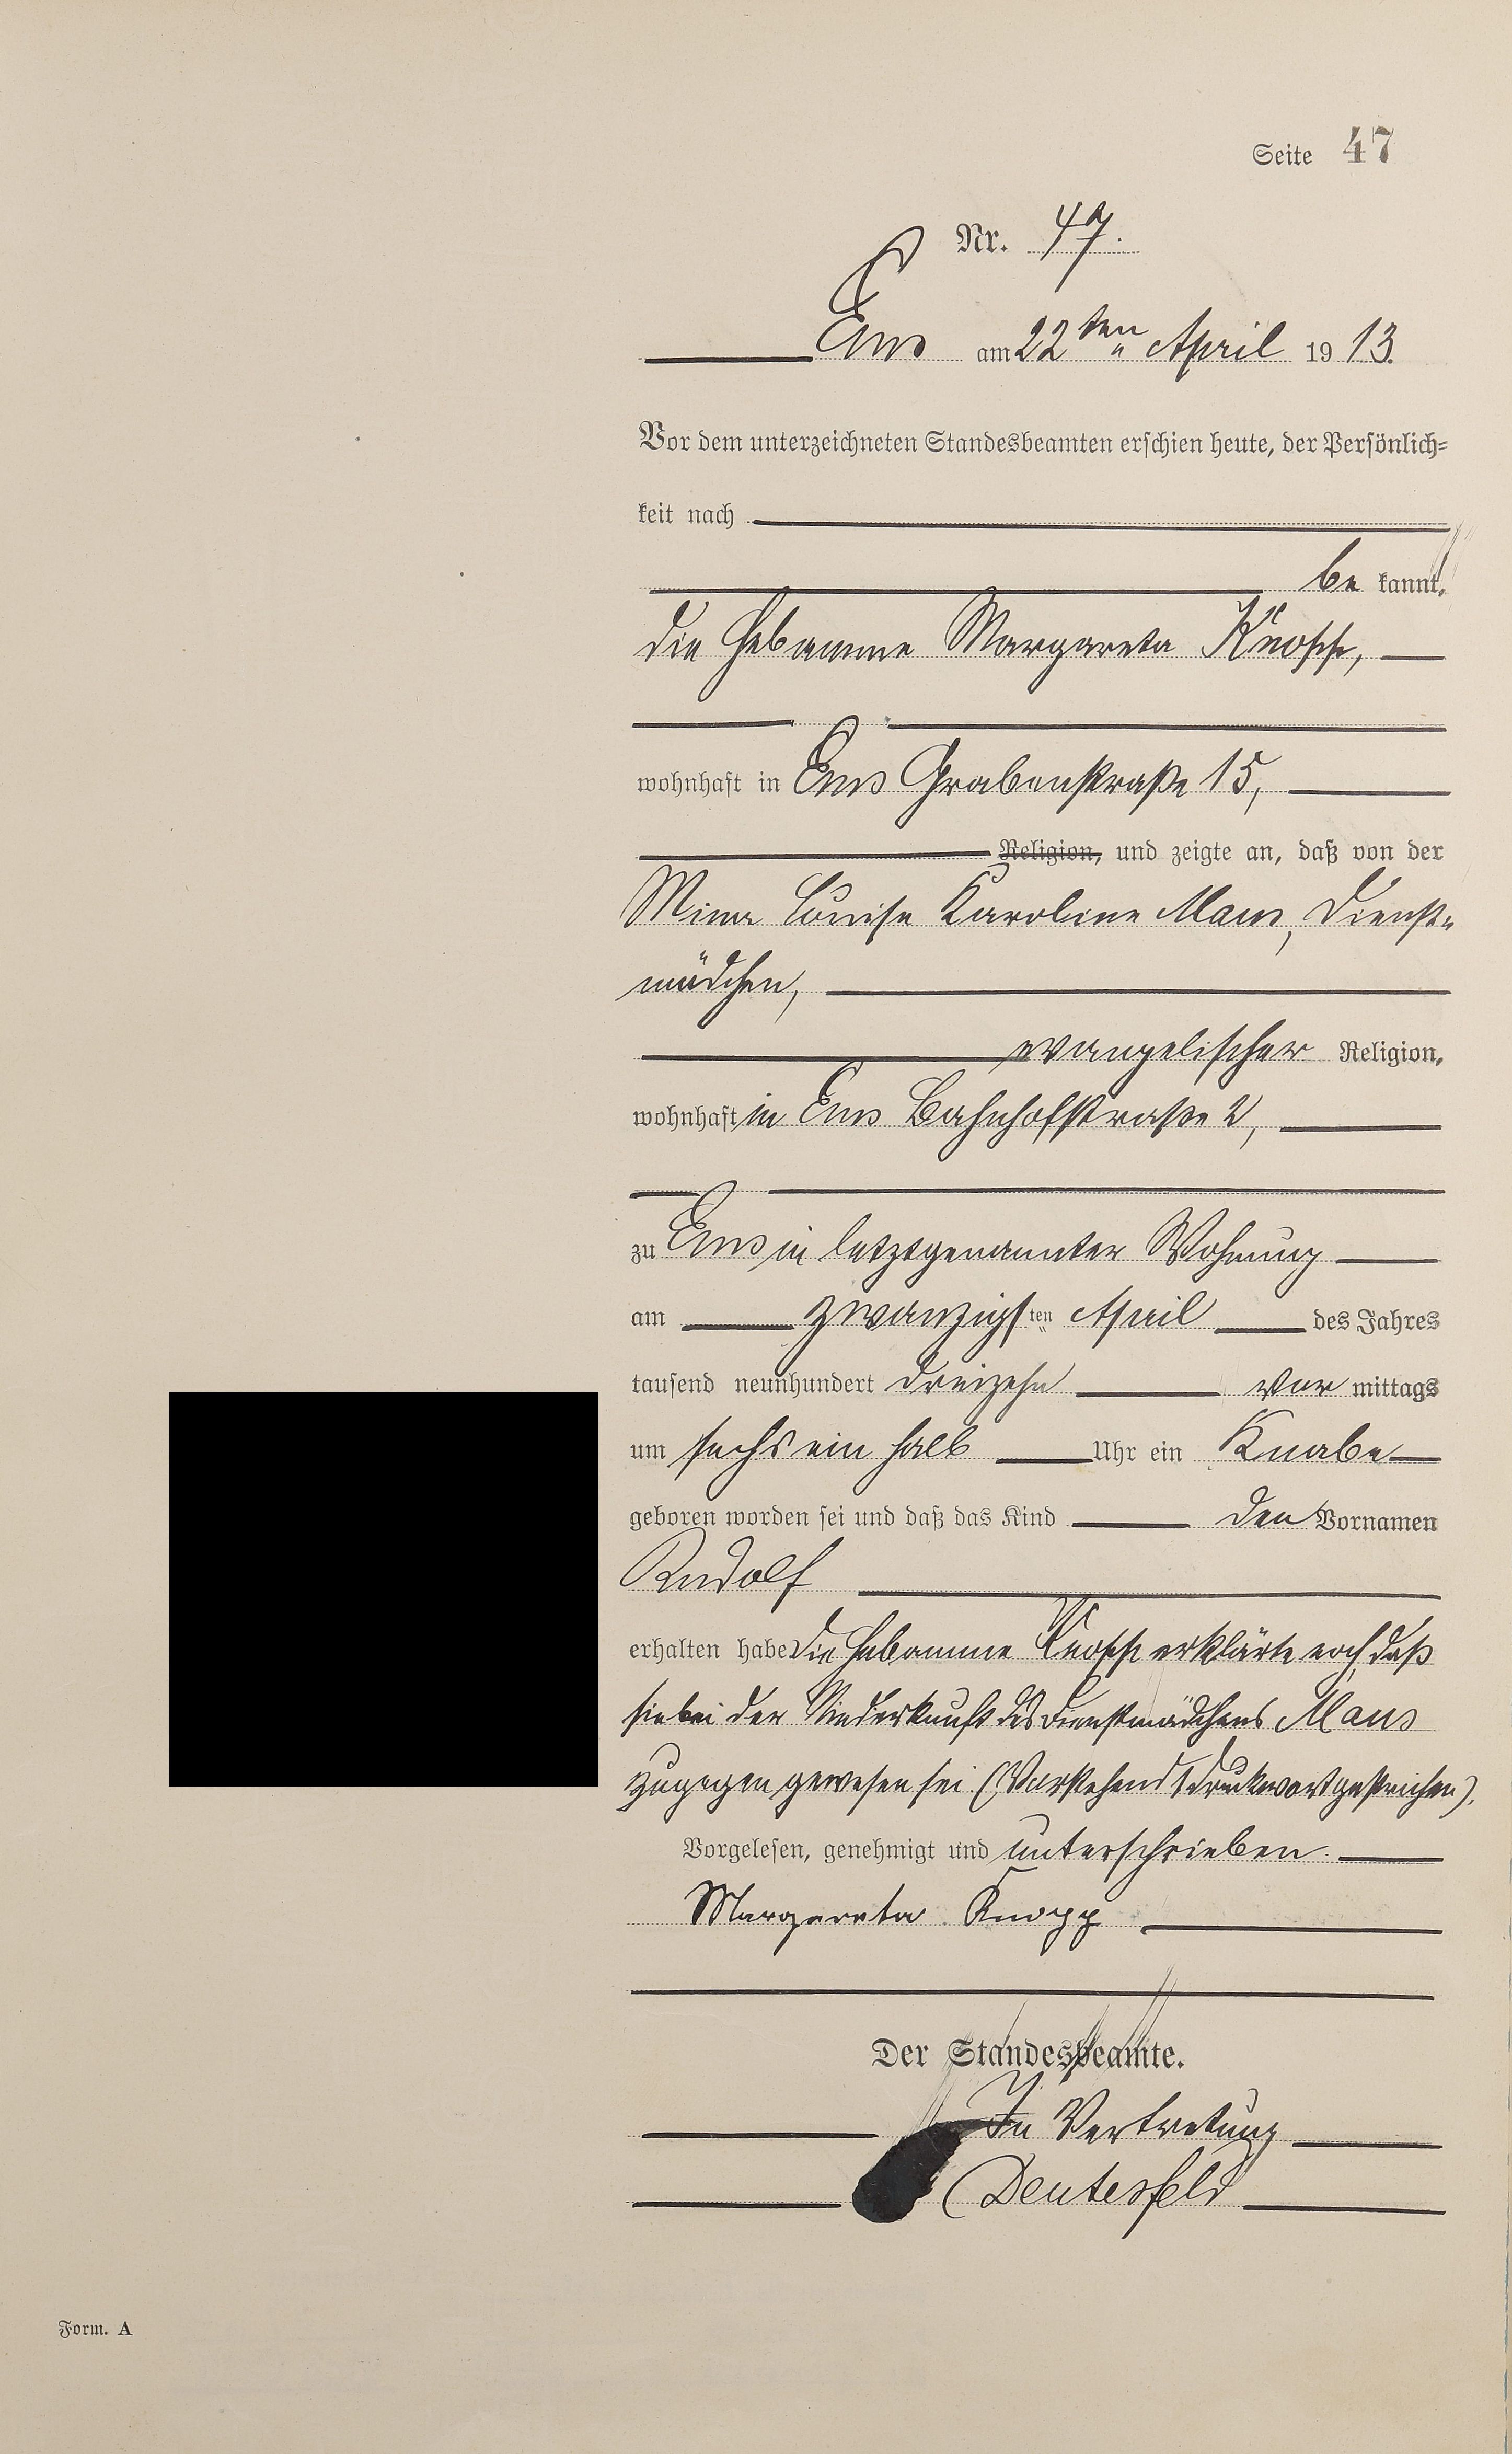 Seite 47
Nr. 47.
Ems am 22ten April 1913.
Vor dem unterzeichneten Standesbeamten erschien heute, der Persönlich-
keit nach
be kannt,
die Hebamme Margareta Knopp,
wohnhaft in Ems Grabenstraße 15,
Religion, und zeigte an, daß von der
Mina Louise Karoline Maus, Dienst-
mädchen,
evangelischer Religion,
wohnhaft in Ems Bahnhofstraße 2,
zu Ems in letztgenannter Wohnung
am zwanzigsten April des Jahres
tausend neunhundert dreizehn vor mittags
um sechs ein halb Uhr ein Knabe
geboren worden sei und daß das Kind den Vornamen
Rudolf
erhalten habe Die Hebamme Knopp erklärte noch, daß
sie bei der Niederkunft des Dienstmädchens Maus
zugegen gewesen sei (Vorstehend 1 Druckwort gestrichen).
Vorgelesen, genehmigt und unterschrieben.
Margareta Knopp
Der Standesbeamte.
In Vertretung
Deutesfeld
Form. A